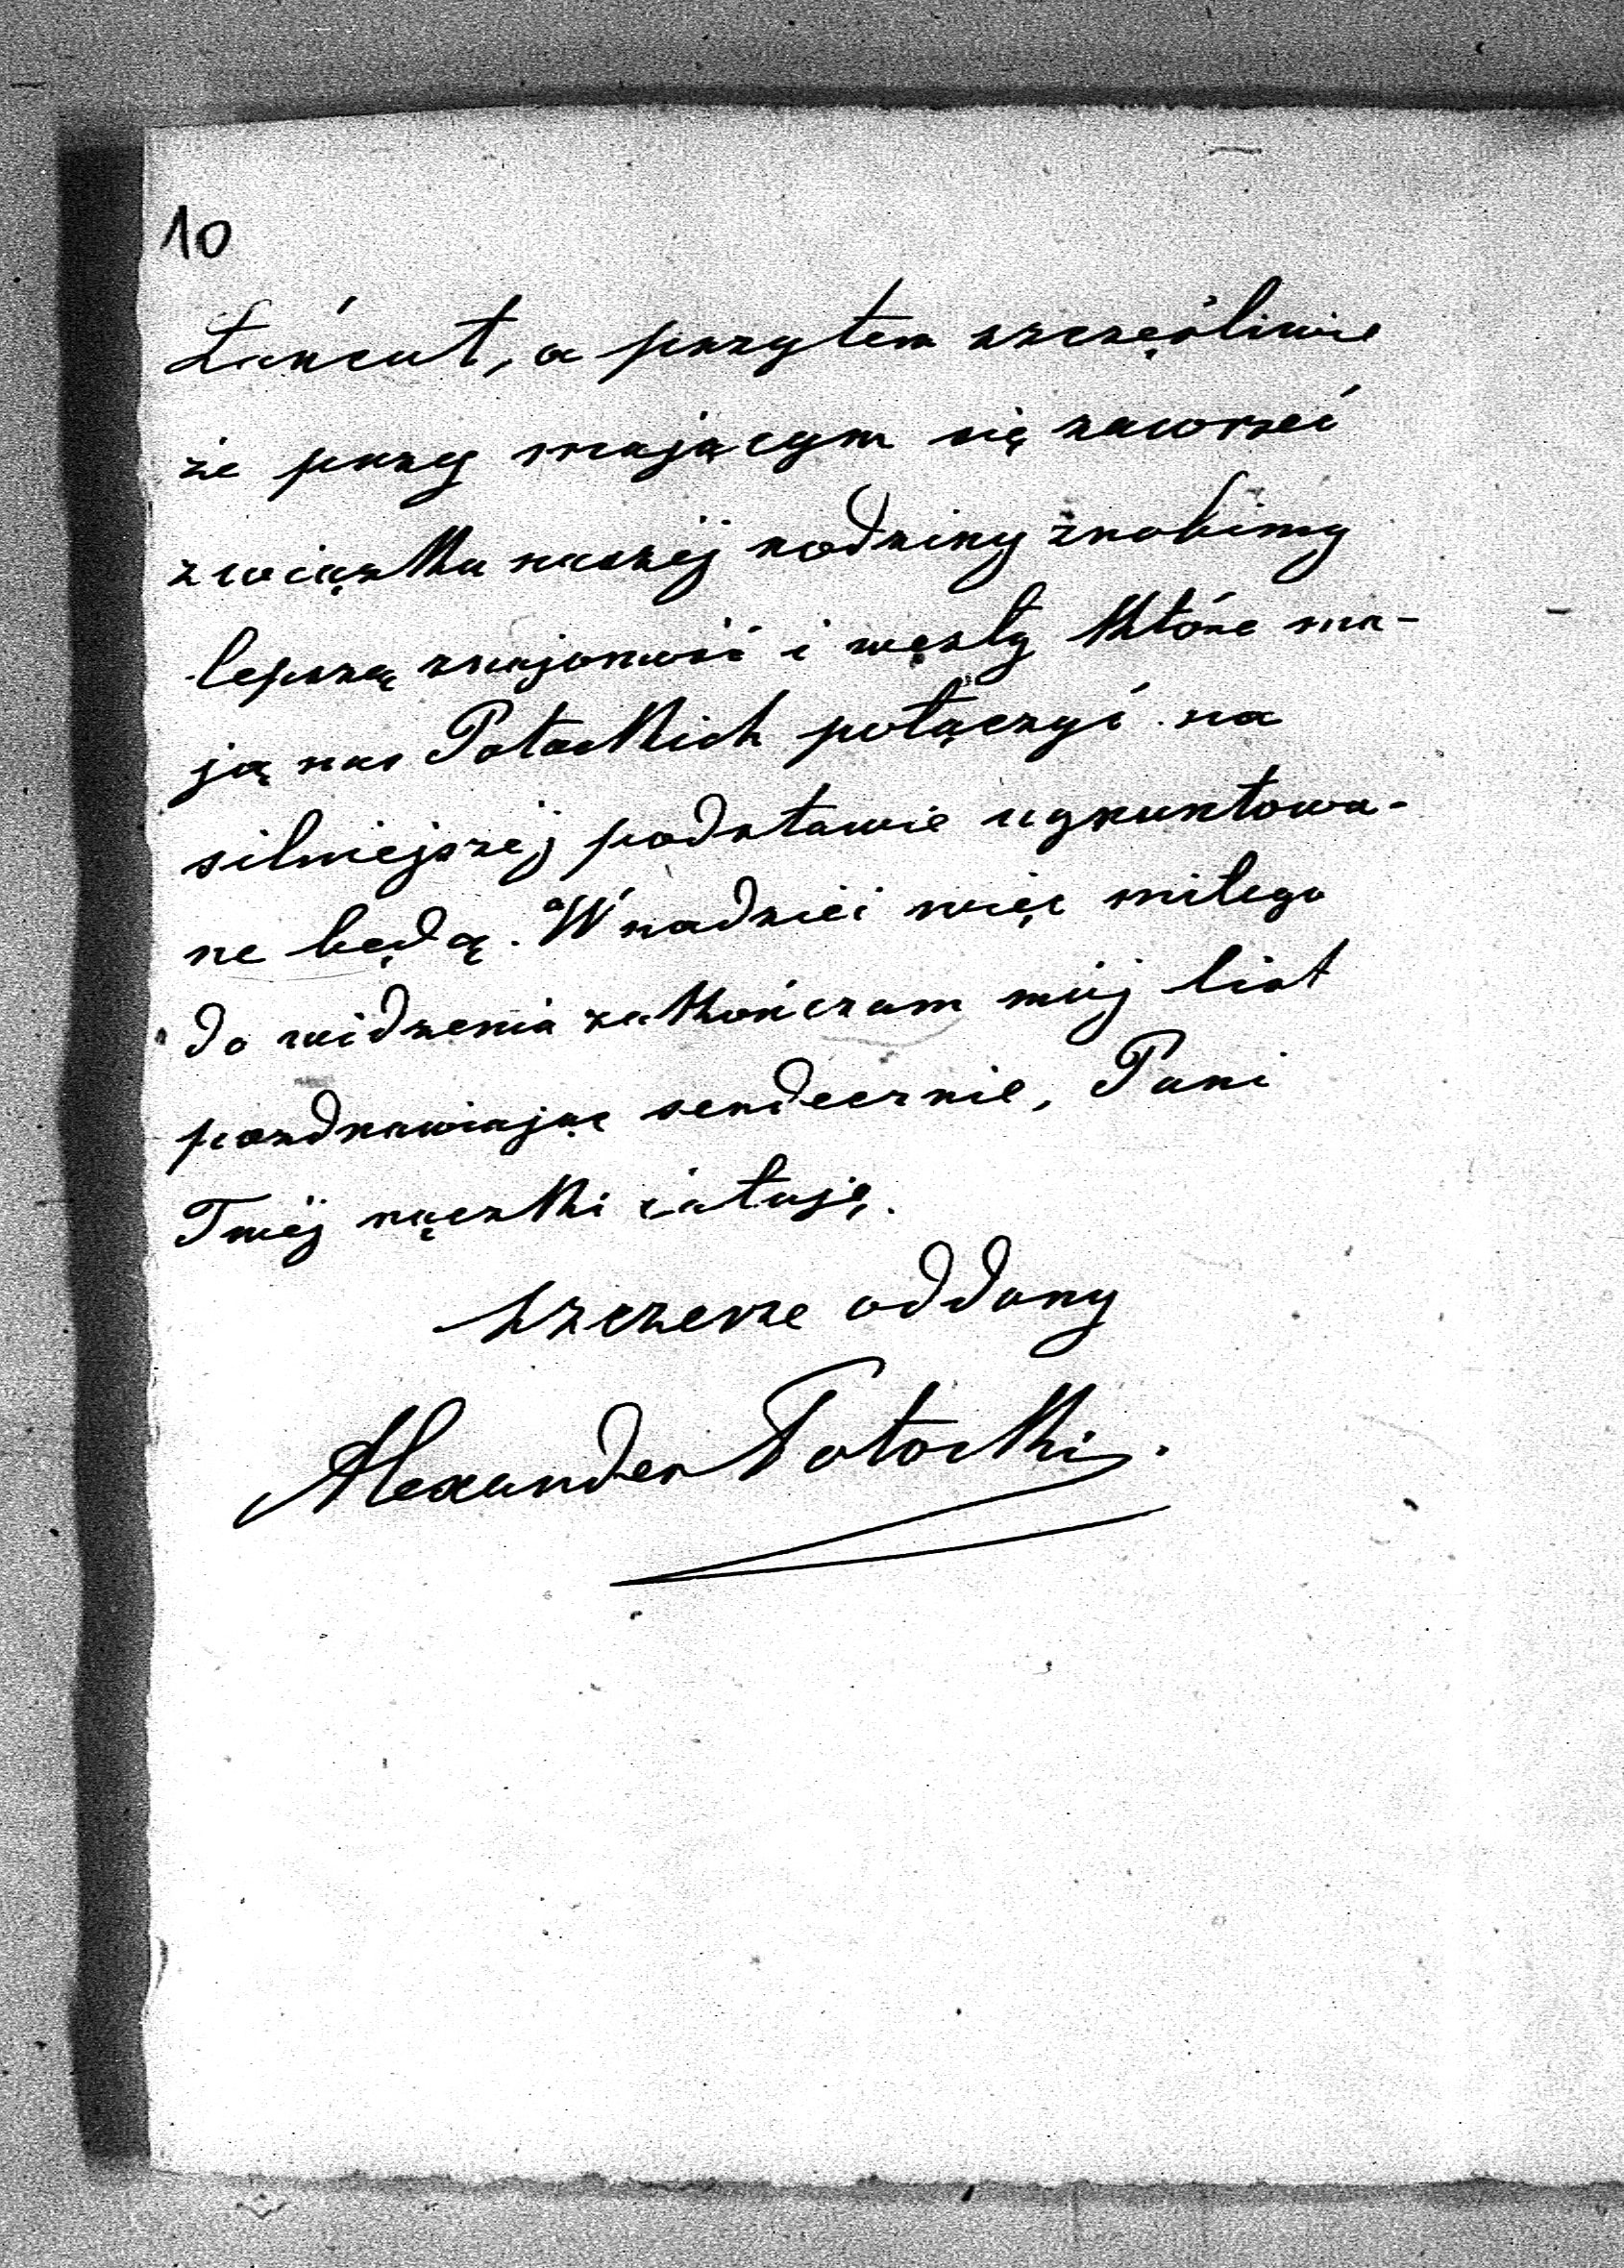 10
Łańcut, a przytem szczęśliwie
że przy mającym się zawrzeć
związku naszéj rodziny zrobimy
lepszą znajomość i węzły które ma-
ją nas Potockich połączyć na
silniejszej podstawie ugruntowa-
ne będą. W nadziei więc miłego
do widzenia zakończam mój list
pozdrawiając serdecznie, Pani
Twéj rączki całuję.
szczerze oddany
Alexander Potocki.